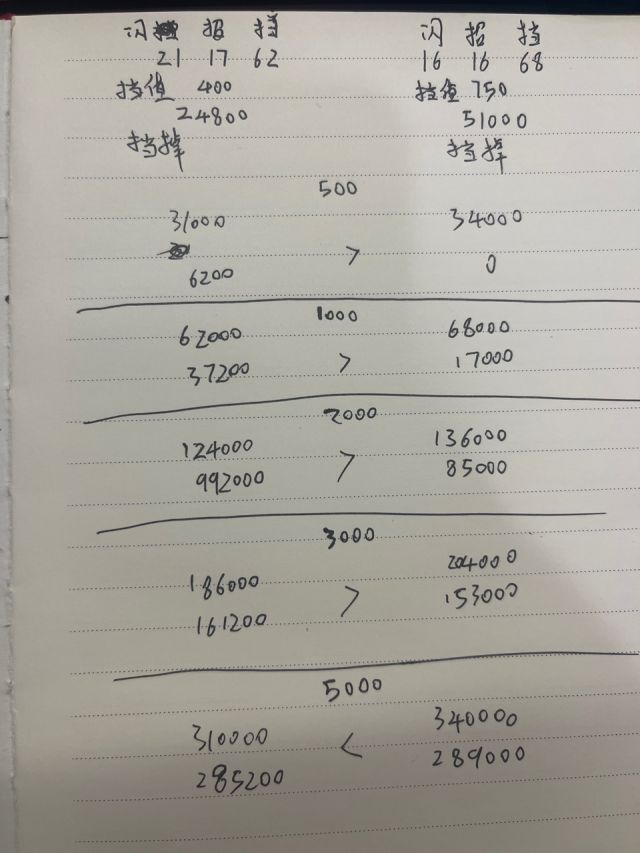 闪 招 挡 闪 招 挡
21 17 62 16 16 68
挡值 400 挡值 750
24800 51000
挡掉 挡掉
500
31000 34000
6200 > 0
1000
62000 68000
37200 > 17000
2000
124000 136000
992000 > 85000
3000
186000 204000
161200 > 153000
5000
310000 < 340000
285200 289000